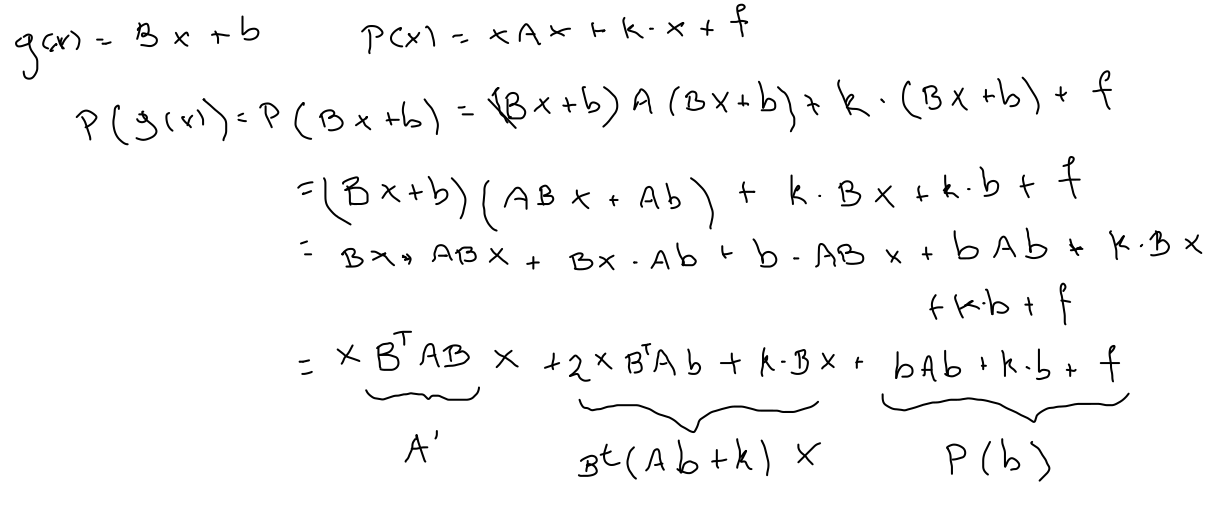 g(x) = Bx + b P(x) = xAx + k·x + f
P(g(x)) = P(Bx+b) = (Bx+b) A (Bx+b) + k·(Bx+b) + f
= (Bx+b)(ABx + Ab) + k·Bx + k·b + f
= Bx·ABx + Bx·Ab + b·ABx + bAb + k·Bx
+ k·b + f
= x BᵀAB x + 2xBᵀAb + k·Bx + bAb + k·b + f
A' Bᵗ(Ab+k) x P(b)